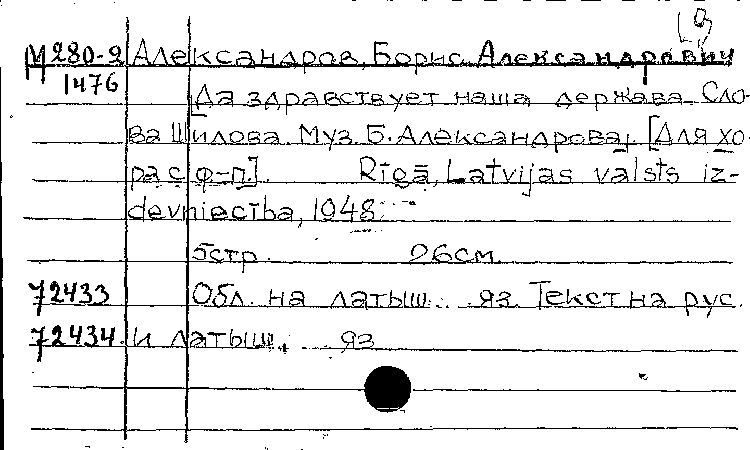 М280-2 Александров, Борис Александрович
1476
[Да здравствует наша держава. Сло-
ва Шилова. Муз. Б. Александрова. [Для хо-
ра с ф-п]. Rīgā, Latvijas valsts iz-
devniecība, 1948.
5стр. 26см
72433 Обл. на латыш. яз. Текст на рус.
72434 и латыш. яз